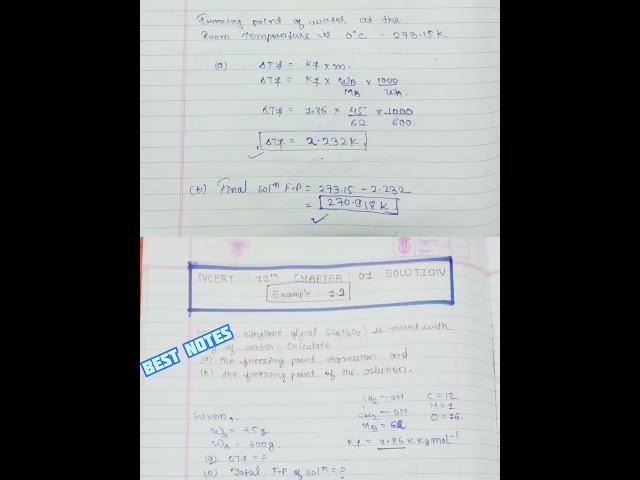 Freezing point of water at the
Room Temperature is 0°C = 273.15K.
(a) ΔTf = Kf × m.
ΔTf = Kf × WB/MB × 1000/WA
ΔTf = 1.86 × 45/62 × 1000/600.
ΔTf = 2.232K
(b) Final solⁿ F.P = 273.15 - 2.232
= 270.918 K
NCERT 12th CHAPTER : 01 SOLUTION
Example : 1.9
BEST NOTES
ethylene glycol (C2H6O2) is mixed with
of water. Calculate
(a) the freezing point depression and
(b) the freezing point of the solution.
Given.
CH2-OH C = 12
CH2-OH. H = 1
O = 16.
WB = 45g
MB = 62
WA = 600g.
Kf = 1.86 K Kg mol⁻¹
(a) ΔTf = ?
(b) Total F.P of solⁿ = ?